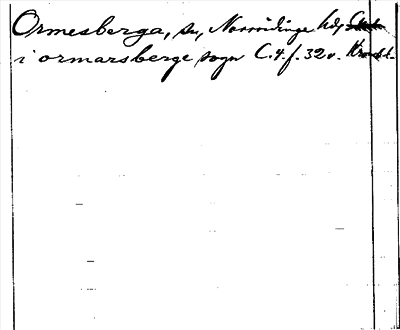 Ormesberga, sn, Norrvidinge hd,
i ormarsberge sogn C.4.f.32v. Kronob.l.